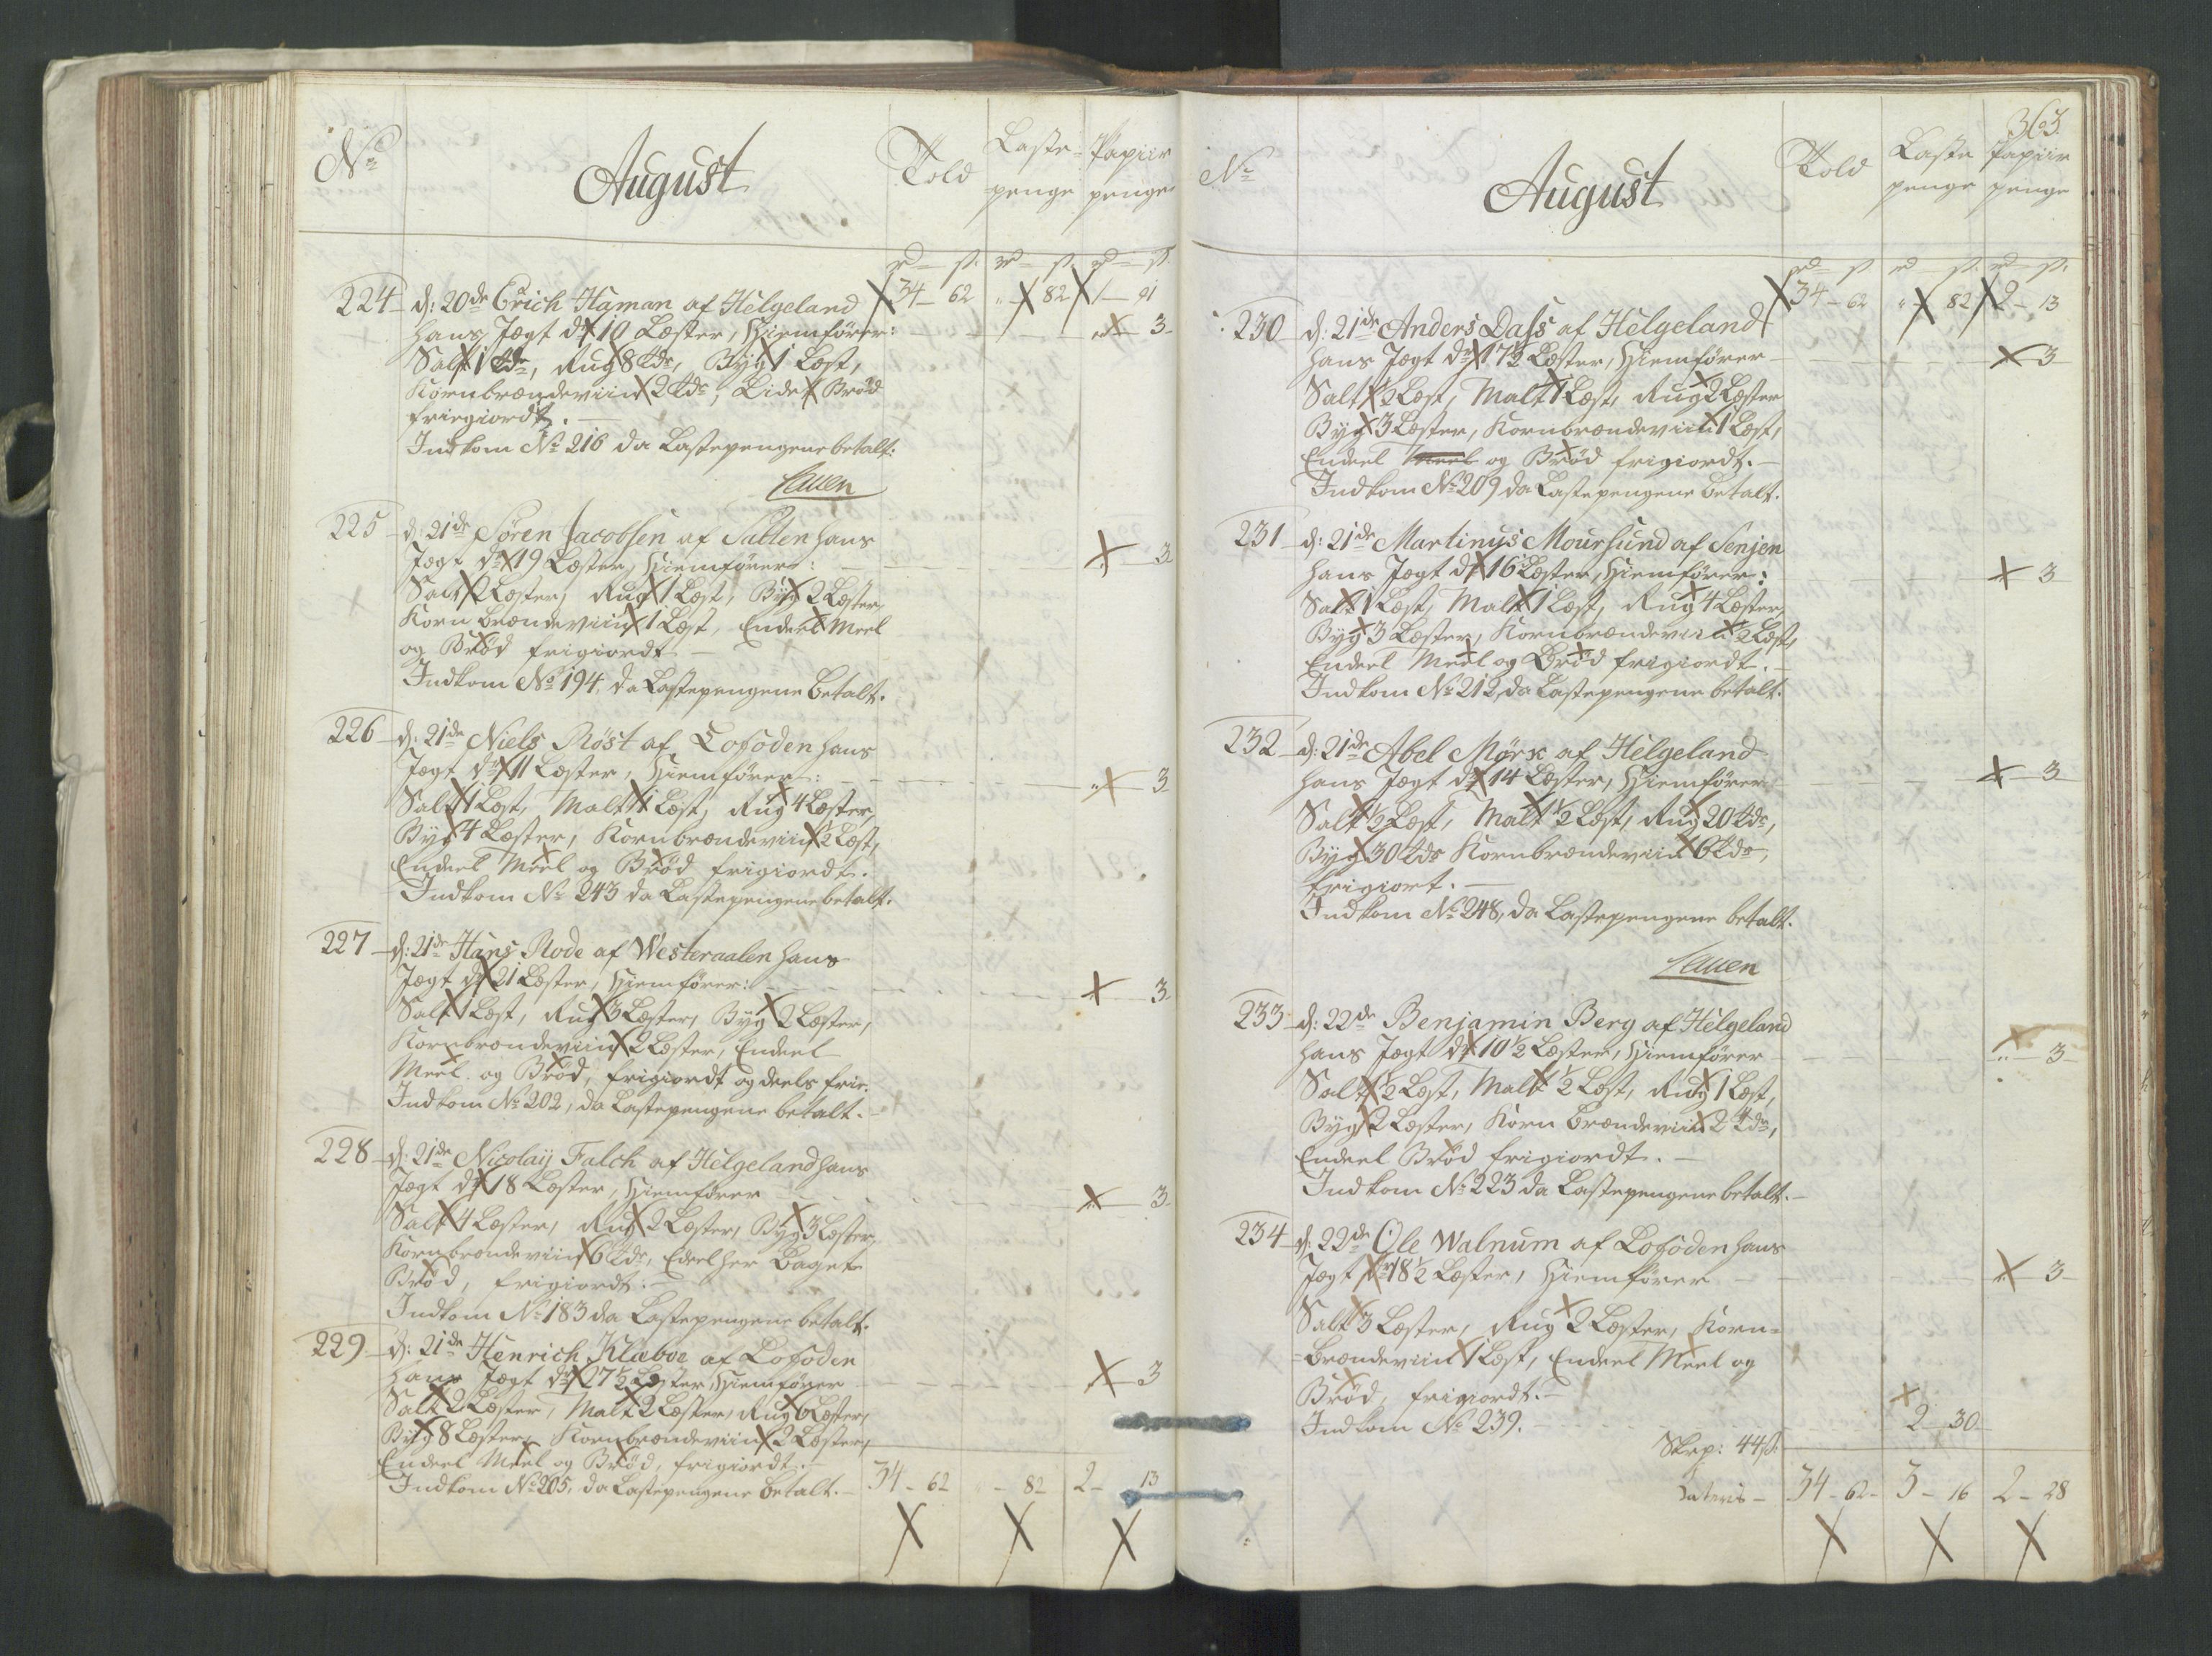 No
August
Told
Laste-
penge
Papiir
penge
rd - s. rd - s. rd - s.
34 - 62 " - 82 1 - 91
224 d: 20de Erich Haman af Helgeland
hans Jægt dr. 10 Læster, Hiemfører: " - 3
Salt 1 tde, Rug 8 tdr, Byg 1 Læst,
Kornbrændeviin 2 tdr, Lidet Brød
friegiordt.
Indkom No 216 da Lastepengene betalt.
Lauen
225 d: 21de Søren Jacobsen af Salten hans
Jægt dr. 19 Læster, Hiemfører: " - 3
Salt 2 Læster, Rug 1 Læst, Byg 2 Læster,
Korn Brændeviin 1 Læst, Endeel Meel
og Brød frigiordt
Indkom No 194, da Lastepengene betalt.
226 d: 21de Niels Røst af Lofoden hans
Jægt dr. 11 Læster, Hiemfører: " - 3
Salt 1 Læst, Malt 1 Læst, Rug 4 Læster,
Byg 4 Læster, Kornbrændeviin ½ Læst,
Endeel Meel og Brød frigiordt.
Indkom No 243 da Lastepengene betalt.
227 d: 21de Hans Rode af Westeraalen hans
Jægt dr. 21 Læster, Hiemfører: " - 3
Salt 1 Læst, Rug 3 Læster, Byg 2 Læster,
Kornbrændeviin 2 Læster, Endeel
Meel og Brød, frigiordt og deels frie.
Indkom No 202, da Lastepengene betalt.
228 d: 21de Nicolaij Falch af Helgeland hans
Jægt dr. 18 Læster, Hiemfører " - 3
Salt 4 Læster, Rug 2 Læster, Byg 3 Læster,
Kornbrændeviin 6 tdr, Edeel her Baget
Brød, frigiordt.
Indkom No 183 da Lastepengene betalt.
229 d: 21de Henrich Klæboe af Lofoden
hans Jægt dr. 27½ Læster, Hiemfører " - 3
Salt 2 Læster, Malt 2 Læster, Rug 6 Læster,
Byg 8 Læster, Kornbrændeviin 2 Læster,
Endeel Meel og Brød, frigiordt.
Indkom No 205, da Lastepengene betalt.
34 - 62 " - 82 2 - 13
363
No
August
Told
Laste
penge
Papiir
penge
rd - s rd - s. rd - s.
34 - 62 " - 82 2 - 13
230 d: 21de Anders Dass af Helgeland
hans Jægt dr. 17½ Læster, Hiemfører " - 3
Salt ½ Læst, Malt 1 Læst, Rug 2 Læster
Byg 3 Læster, Kornbrændeviin 1 Læst,
Endeel Meel og Brød frigiordt.
Indkom No 209 da Lastepengene betalt.
231 d: 21de Martinus Moursund af Senjen
hans Jægt dr. 16 Læster, Hiemfører: " - 3
Salt 1 Læst, Malt 1 Læst, Rug 4 Læster,
Byg 3 Læster, Kornbrændeviin ½ Læst,
Endeel Meel og Brød frigiordt.
Indkom No 212, da Lastepengene betalt.
232 d: 21de Abel Mørk af Helgeland
hans Jægt dr. 14 Læster, Hiemfører " - 3
Salt ½ Læst, Malt ½ Læst, Rug 20 tdr,
Byg 30 tdr Kornbrændeviin 6 tdr,
frigiort.
Indkom No 248, da Lastepengene betalt.
Lauen
233 d: 22de Benjamin Berg af Helgeland
hans Jægt dr. 10½ Læster, Hiemfører " - 3
Salt ½ Læst, Malt ½ Læst, Rug 1 Læst,
Byg 2 Læster, Korn Brændeviin 2 tdr,
Endeel Brød frigiordt.
Indkom No 223 da Lastepengene betalt.
234 d: 22de Ole Walnum af Lofoden hans
Jægt dr. 18½ Læster, Hiemfører " - 3
Salt 3 Læster, Rug 2 Læster, Korn=
=Brændeviin 1 Læst, Endeel Meel og
Brød, frigiordt.
Indkom No 239. 2 - 30
Skrp: 44 s.
Lateris 34 - 62 3 - 16 2 - 28